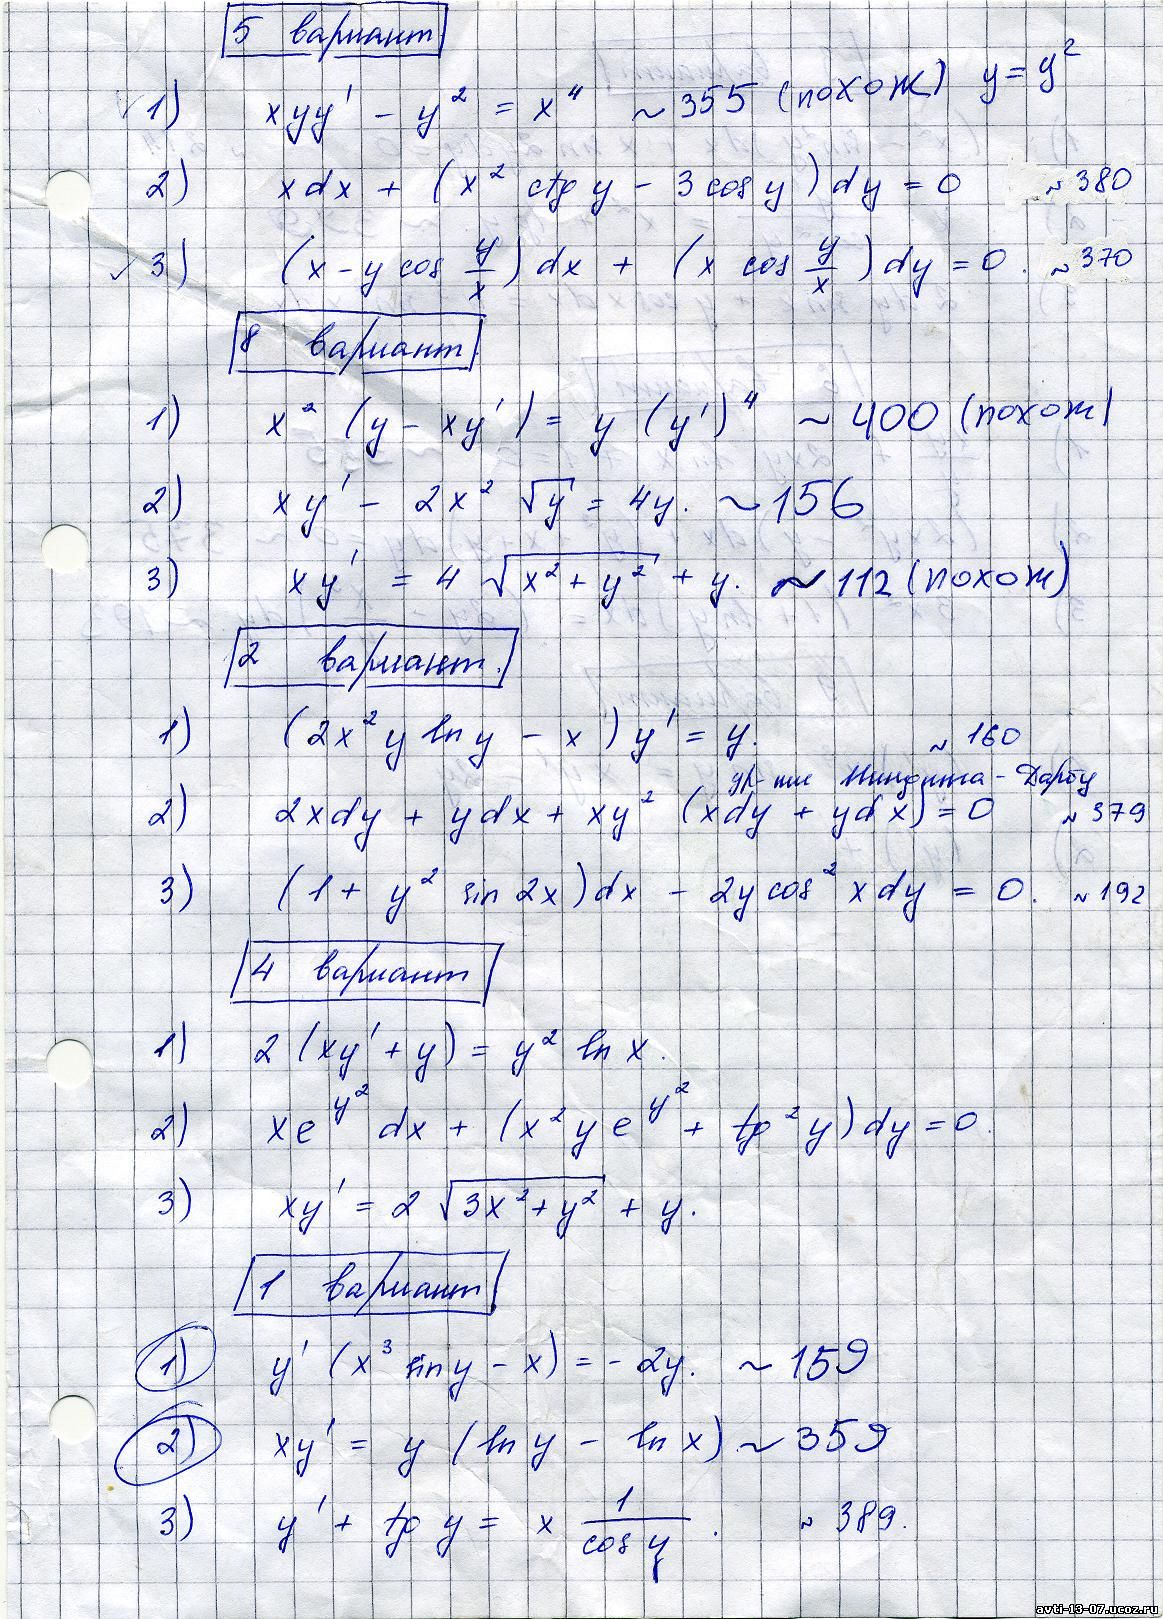 5 вариант
1) xyy' - y² = x⁴ ~ 355 (похож) y = y²
2) xdx + (x² ctg y - 3 cos y) dy = 0 ~ 380
3) (x - y cos y/x) dx + (x cos y/x) dy = 0. ~ 370
8 вариант
1) x² (y - xy') = y (y')⁴ ~ 400 (похож)
2) xy' - 2x² √y = 4y. ~ 156
3) xy' = 4 √(x² + y²) + y. ~ 112 (похож)
2 вариант.
1) (2x² y ln y - x) y' = y. ~ 160
ур-ние Миндинга - Дарбу
2) 2xdy + ydx + xy² (xdy + ydx) = 0 ~ 379
3) (1 + y² sin 2x) dx - 2y cos² x dy = 0. ~ 192
4 вариант
1) 2 (xy' + y) = y² ln x.
2) xe^y² dx + (x² y e^y² + tg² y) dy = 0.
3) xy' = 2 √(3x² + y²) + y.
1 вариант
1) y' (x³ sin y - x) = - 2y. ~ 159
2) xy' = y (ln y - ln x) ~ 359
3) y' + tg y = x 1/cos y. ~ 389.
avti-13-07.ucoz.ru